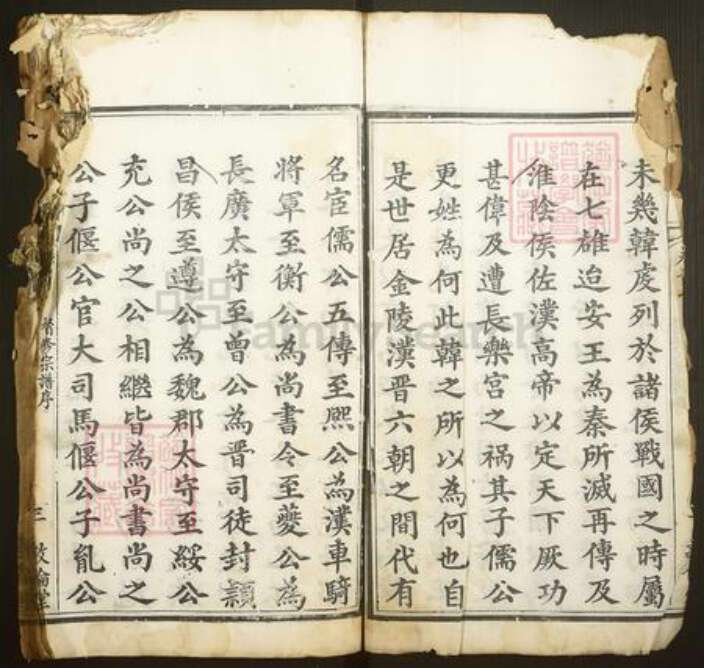 未幾韓虔列於諸侯戰國之時屬
在七雄迨安王為秦所滅再傳及
淮陰侯佐漢高帝以定天下厥功
甚偉及遭長樂宮之禍其子儒公
更姓為何此韓之所以為何也自
是世居金陵漢晋六朝之間代有
名宦儒公五傳至熙公為漢車騎
將軍至衡公為尚書令至夔公為
長廣太守至曾公為晋司徒封潁
昌侯至遵公為魏郡太守至綏公
充公尚之公相繼皆為尚書尚之
公子偃公官大司馬偃公子胤公
宗譜序
三
敦倫堂
FamilySearch